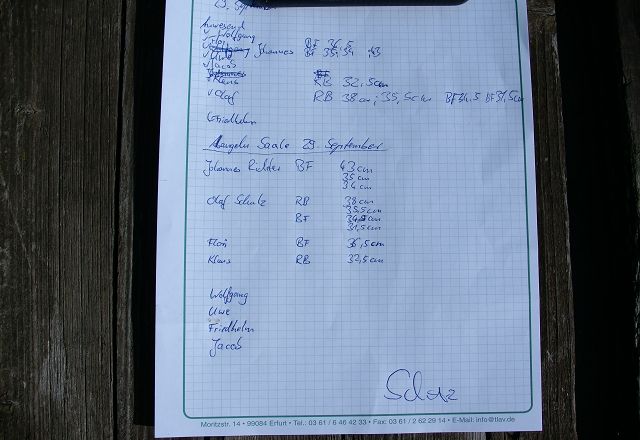 29. September
Anwesend
✓ Wolfgang
✓ Flori BF 36,5
Johannes BF 35, 34, 43
✓ Uwe
✓ Jacob
✓ Klaus RB 32,5cm
✓ Olaf RB 38cm; 35,5cm BF 34,5 BF 31,5cm
Friedhelm
Angeln Saale 29. September
Johannes Richter BF 43 cm
35 cm
34 cm
Olaf Schulz RB 38 cm
35,5 cm
BF 34,5 cm
31,5 cm
Flori BF 36,5 cm
Klaus RB 32,5 cm
Wolfgang
Uwe
Friedhelm
Jacob
Moritzstr. 14 • 99084 Erfurt • Tel.: 03 61 / 6 46 42 33 • Fax: 03 61 / 2 62 29 14 • E-Mail: info@tlav.de